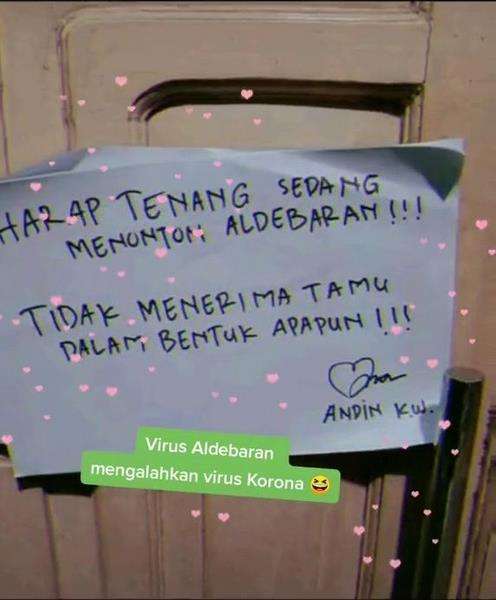 HARAP TENANG SEDANG
MENONTON ALDEBARAN !!!
TIDAK MENERIMA TAMU
DALAM BENTUK APAPUN !!!
ANDIN K.W.
Virus Aldebaran
mengalahkan virus Korona 😆